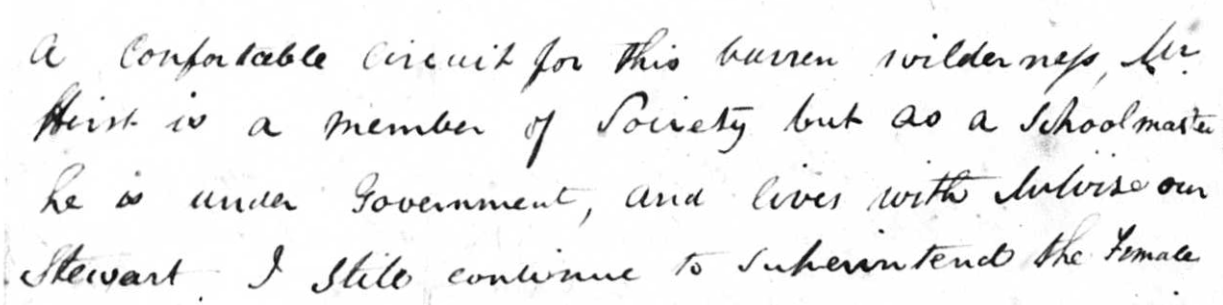 a Confortable Circuit for this barren wilderness, Mr
Hirst is a member of Society but as a Schoolmaster
he is under Government, and lives with Mr Wise our
Stewart. I Still continue to Superintend the Female